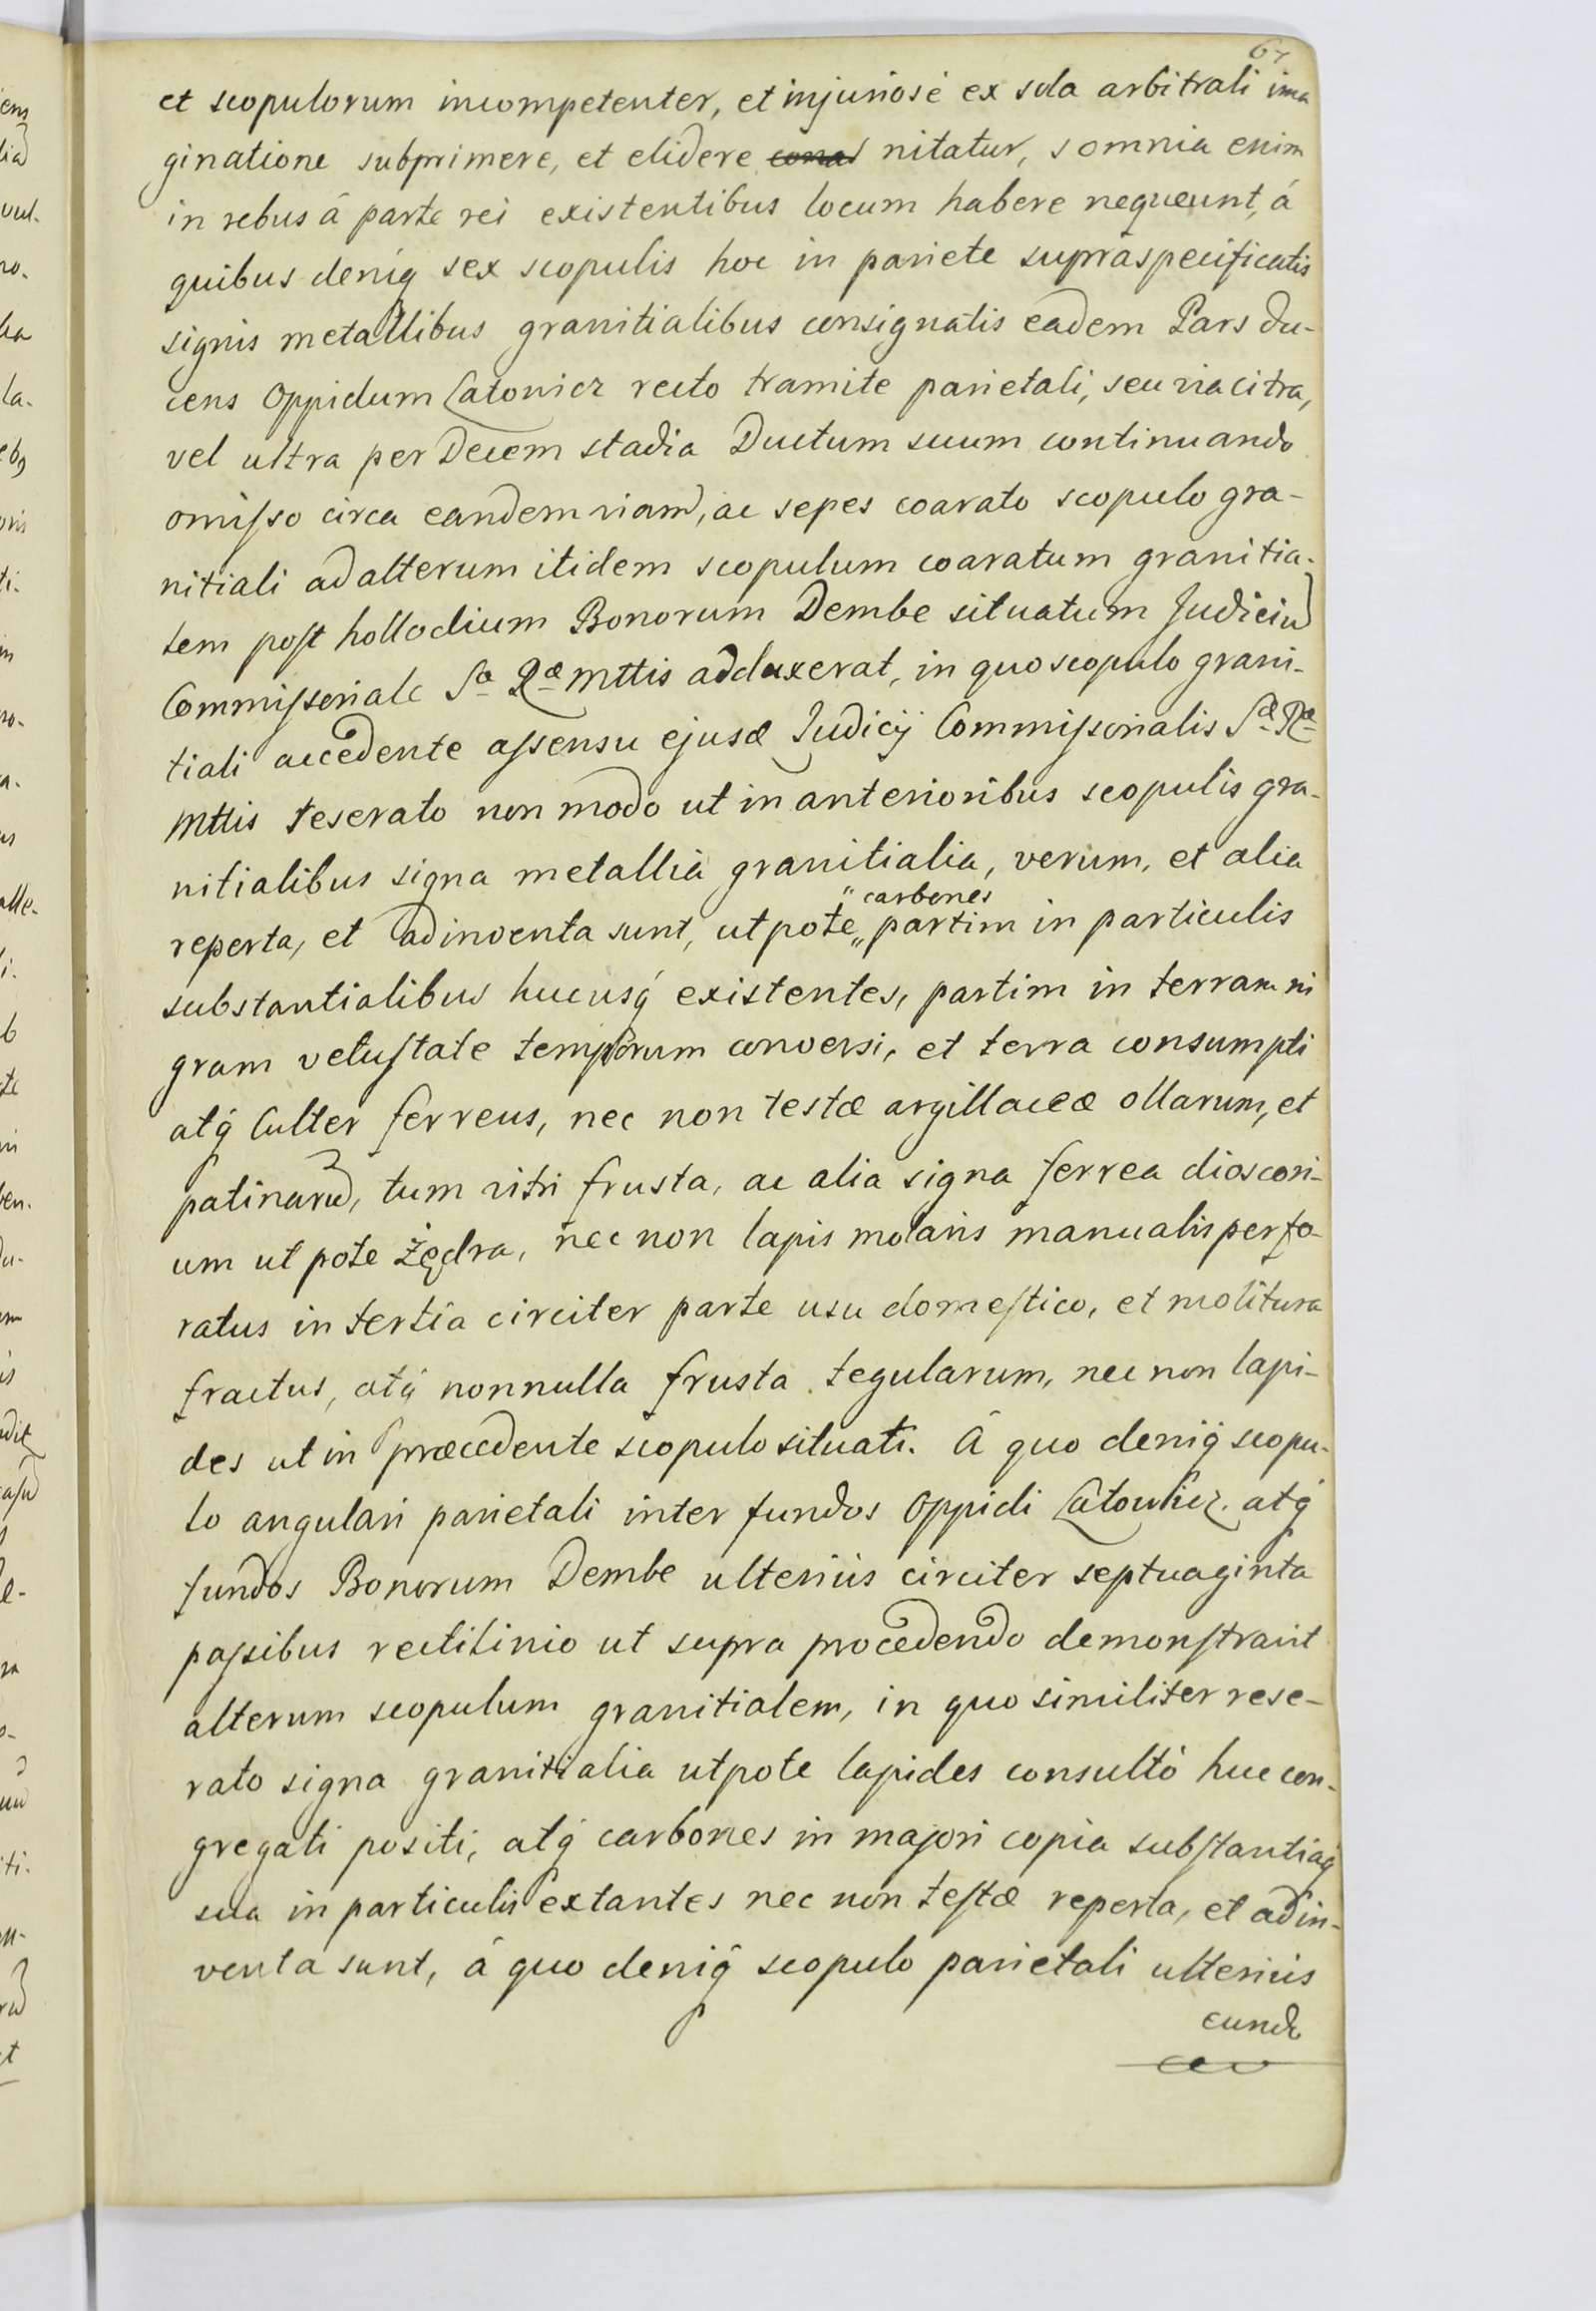 67
et scopulorum incompetenter, et injuriosè ex sola arbitrali ima
ginatione subprimere, et elidere nitatur, somnia enim
in rebus á parte rei existentibus locum habere nequeunt, á
quibus deniq sex scopulis hoc in pariete supráspecificatis
signis metallibus granitialibus consignatis eadem Pars du-
cens Oppidum Latonicz recto tramite parietali, seu via citra,
vel ultra per Decem stadia Ductum suum continuando
omisso circa eandem viam, ac sepes coarato scopulo gra-
nitiali ad alterum itidem scopulum coaratum granitia-
lem post hollodium Bonorum Dembe situatum Judiciu
Commissoriale Sæ Ræ Mttis adduxerat, in quo scopulo grani-
tiali accedente assensu ejusd Judicij Commissorialis Sæ Ræ
Mttis reserato non modo ut in anterioribus scopulis gra-
nitialibus signa metallia granitialia, verum, et alia
reperta, et adinventa sunt, utpote „ carbones partim in particulis
substantialibus hucusq existentes, partim in terram ni
gram vetustate temporum conversi, et terra consumpti
atq Culter ferreus, nec non testæ argillaceæ ollarum, et
patinaru, tum vitri frusta, ac alia signa ferrea dioscori-
um ut pote żędra, nec non lapis molaris manualis perfo-
ratus in tertia circiter parte usu domestico, et molitura
fractus, atq nonnulla frusta tegularum, nec non lapi-
des ut in præcedente scopulo situati. Á quo deniq scopu-
lo angulari parietali inter fundos Oppidi Latowicz atq
fundos Bonorum Dembe ulterius circiter septuaginta
passibus rectilinio ut supra procedendo demonstravit
alterum scopulum granitialem, in quo similiter rese-
rato signa granitialia utpote lapides consultò huc con-
gregati positi, atq carbones in majori copia substantiaq
sua in particulis extantes nec non testæ reperta, et adin-
venta sunt, á quo deniq scopulo parietali ulterius
eundo